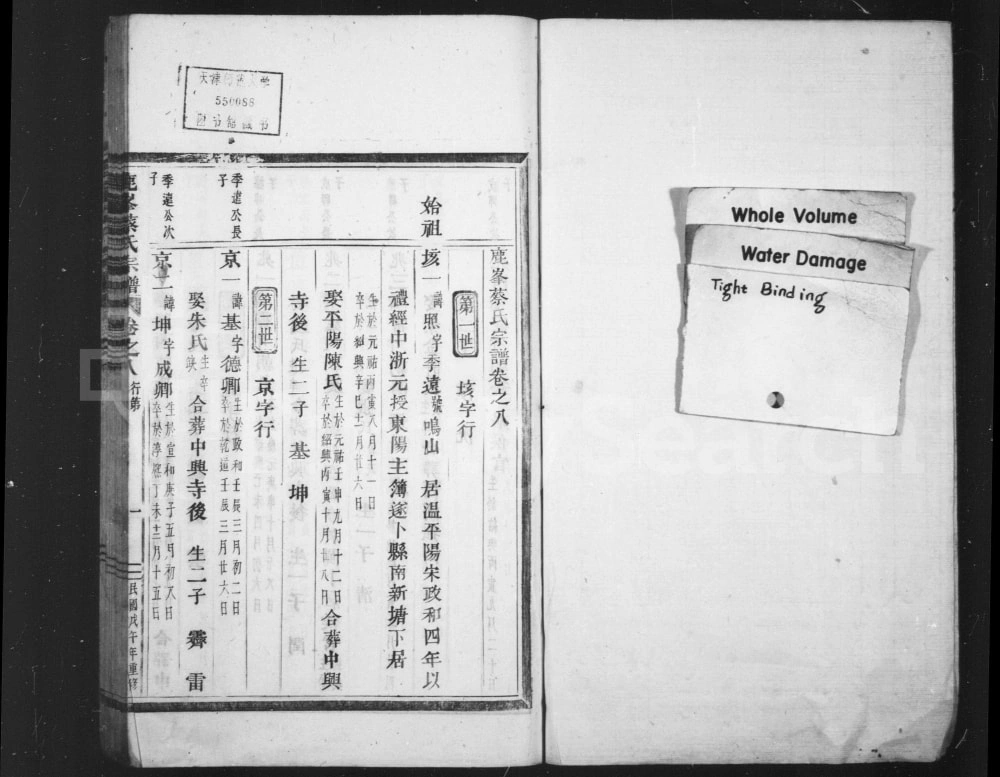 Whole Volume
Water Damage
Tight Binding
550088
鹿峯蔡氏宗譜卷之八
第一世 垓字行
始祖
垓一 諱照字季遠號鳴山 居溫平陽宋政和四年以
禮經中浙元授東陽主簿遂卜縣南新塘下居
生於元祐丙寅八月十一日
卒於紹興辛巳十二月廿六日
娶平陽陳氏 生於元祐壬申九月十二日 卒於紹興丙寅十月廿八日 合葬中興
寺後 生二子 基 坤
第二世 京字行
季遠公長子
京一 諱基字德卿 生於政和壬辰三月初二日 卒於乾道壬辰三月廿六日
娶朱氏 生卒 合葬中興寺後 生二子 霽 雷
季遠公次子
京二 諱坤字成卿 生於宣和庚子五月初八日 卒於淳熙丁未十二月十五日
鹿峯蔡氏宗譜 卷之八 行第 一 民國戊午年重修